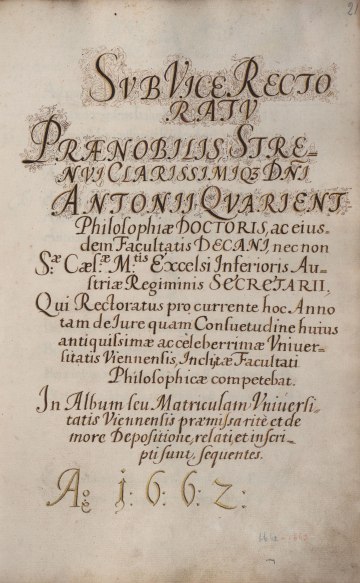 21
SVB VICE RECTO
RATV
PRÆNOBILIS STRE-
NVI CLARISSIMIQꝫ DÑI
ANTONII QVARIENT
Philosophiæ DOCTORIS, ac eius-
dem Facultatis DECANI, nec non
S.æ Cæs.æ M.tis Excelsi Inferioris Au-
striæ Regiminis SECRETARII,
Qui Rectoratus pro currente hoc Anno
tam de Iure quam Consuetudine huius
antiquissimæ ac celeberrimæ Vniver-
sitatis Viennensis, Inclitæ Facultati
Philosophicæ competebat.
In Album seu Matriculam Vniversi-
tatis Viennensis præmissa ritè et de
more Depositione, relati et inscri-
pti sunt, sequentes.
Aº 1:6:6:2: